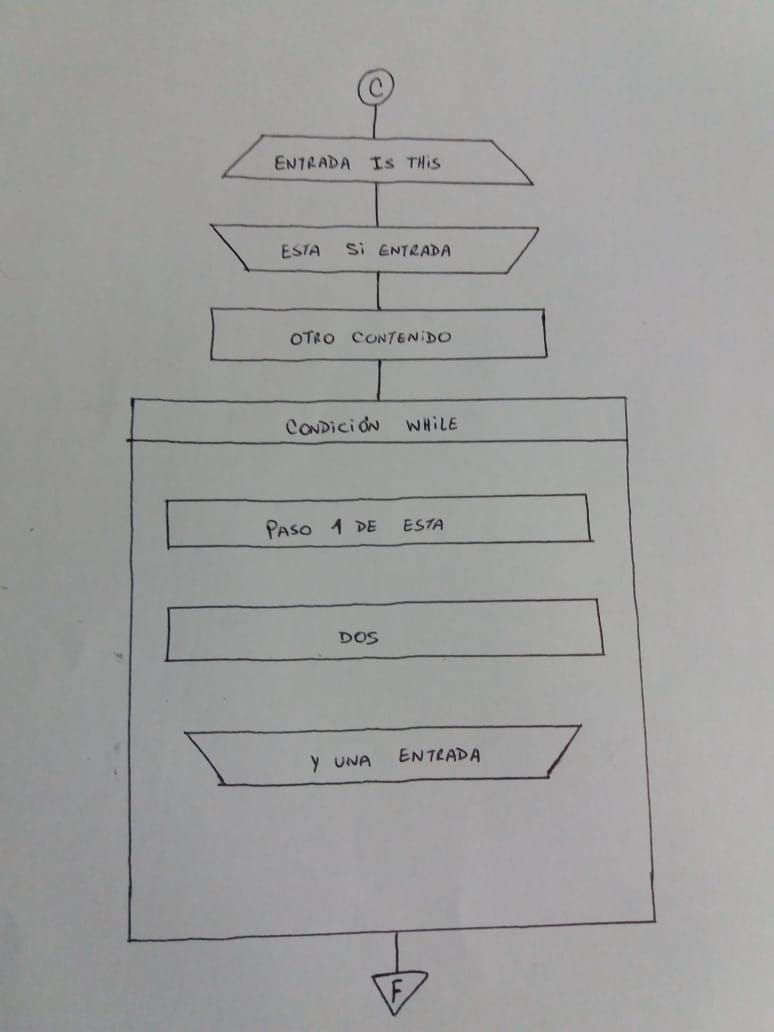 C
ENTRADA IS THIS
ESTA Si ENTRADA
OTRO CONTENiDO
CONDICIÓN WHiLE
PASO 1 DE ESTA
DOS
Y UNA ENTRADA
F